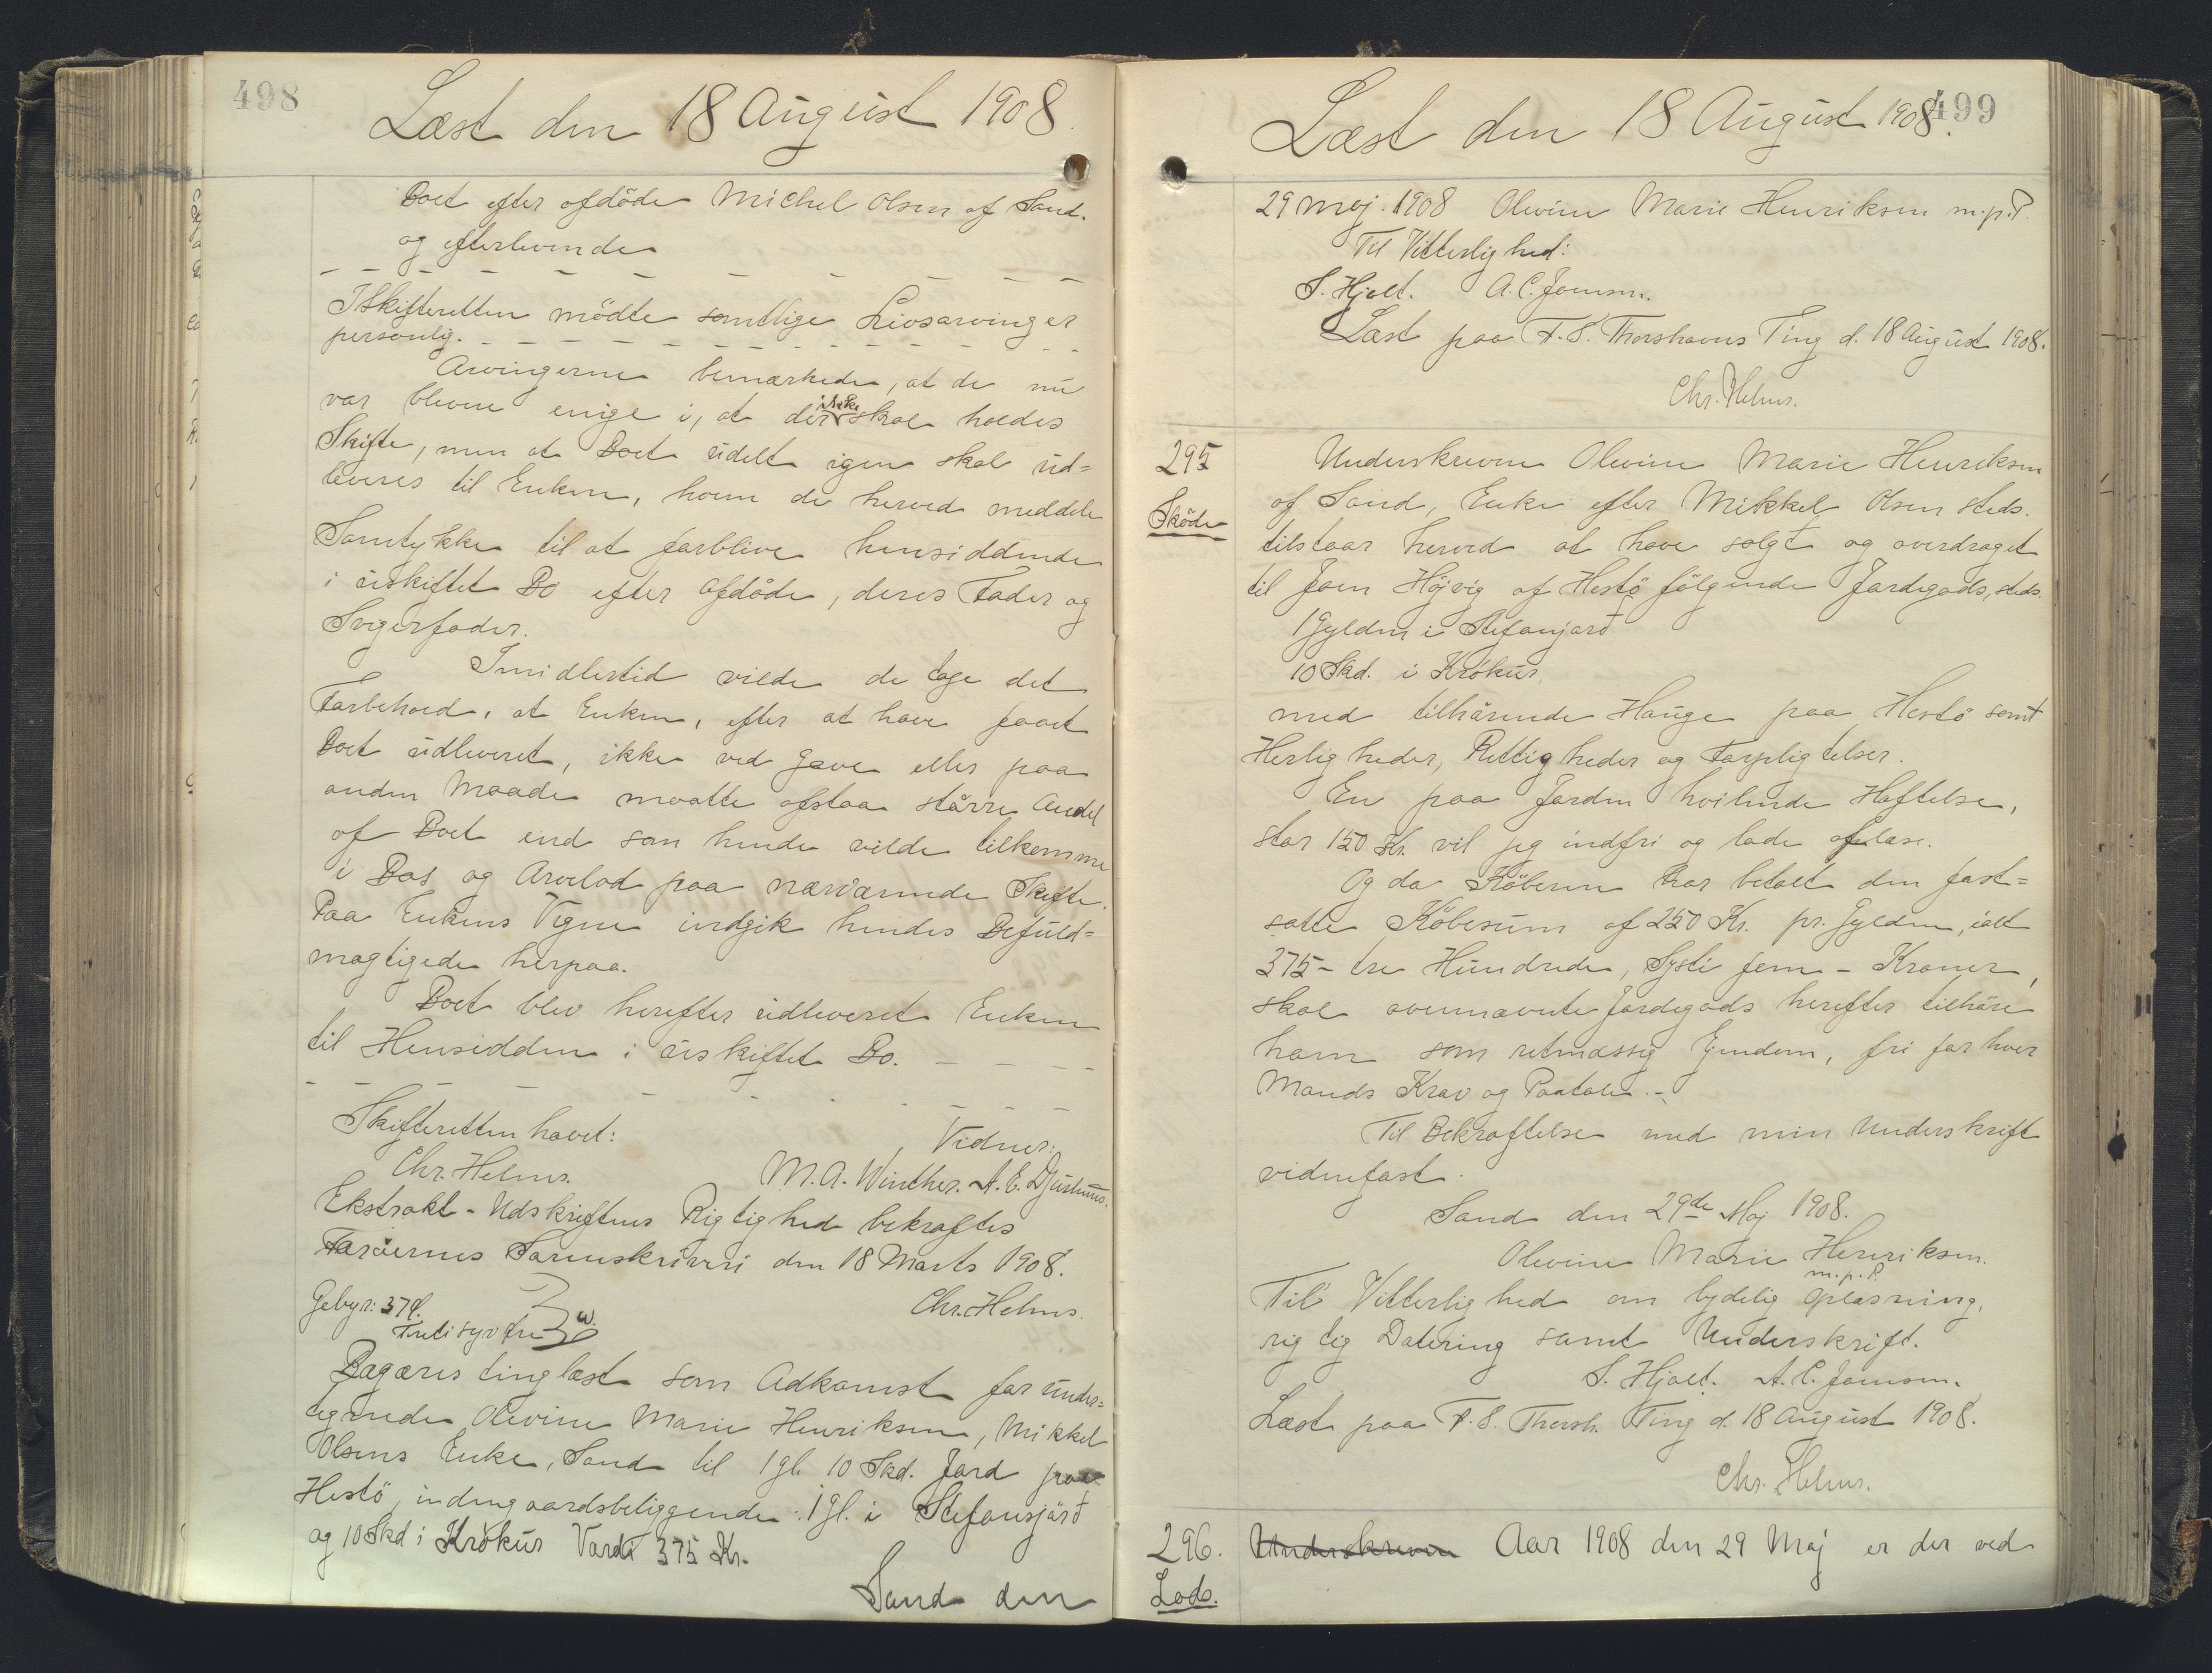 498
Læst den 18 August 1908.
Boet efter afdöde Michel Olsen af Sand.
og efterlevende
I Skifteretten mödte samtlige Livsarvinger
personlig.
Arvingerne bemærkede, at de nu
var blevne enige i, at der ikke skal holdes
Skifte, men at Boet udelt igen skal ud=
leveres til Enken, hvem de herved meddele
Samtykke til at forblive hensiddende
i uskiftet Bo efter afdöde, deres Fader og
Svigerfader.
Imidlertid vilde de tage det
Forbehold, at Enken, efter at have faaet
Boet udleveret, ikke ved Gave eller paa
anden Maade maatte afstaa större Andel
af Boet end som hende vilde tilkomme
i Bos og Arvelod paa nærværende Skifte.
Paa Enkens Vegne indgik hendes Befuld=
mægtigede herpaa.
Boet blev herefter udleveret Enken
til Hensidden i uskiftet Bo.
Skifteretten hævet:
Vidner:
Chr. Helms.
M. A. Winther. A. E. Djurhuus.
Ekstrakt-Udskriftens Rigtighed bekræftes
Færöernes Sorenskriveri den 18 Marts 1908.
Gebyr: 37 Ø.
Chr. Helms.
Treti syv Øre
W.
Begæres tinglæst som Adkomst for under=
tegnede Olevine Marie Henriksen, Mikkel
Olsens Enke, Sand til 1 gl. 10 Skd. Jord paa
Hestö, indengaardsbeliggende: 1 gl. i Stefansjørd
og 10 Skd i Krökur Værdi 375 Kr.
Sand den
499
Læst den 18 August 1908.
29 Maj. 1908 Olevine Marie Henriksen m.p.P.
Til Vitterlighed:
S. Hjalt. A. C. Joensen.
Læst paa F. S. Thorshavns Ting d. 18 August 1908.
Chr. Helms.
295
Skøde
Underskrevne Olevine Marie Henriksen
af Sand, Enke efter Mikkel Olsen steds.
tilstaar herved at have solgt og overdraget
til Joen Höjvig af Hestö fölgende Jordegods, steds.
1 Gylden i Stefanjørd
10 Skd. i Krökur,
med tilhörende Hauge paa Hestö samt
Herligheder, Rettigheder og Forpligtelser.
En paa Jorden hvilende Hæftelse,
stor 150 Kr. vil jeg indfri og lade aflæse.
Og da Köberen har betalt den fast=
satte Köbesum af 250 Kr. pr. Gylden, ialt
375 - tre Hundrede, Systi fem - Kroner,
skal ovennævnte Jordegods herefter tilhöre
ham som retmæssig Ejendom, fri for hver
Mands Krav og Paatale.-
Til Bekræftelse med min Underskrift
vidnefast.
Sand den 29de Maj 1908.
Olevine Marie Henriksen.
m. p. P.
Til Vitterlighed om tydelig Oplæsning,
rigtig Datering samt Underskrift.
S. Hjalt. A. C. Joensen.
Læst paa F. S. Thorsh. Ting d. 18 August 1908.
Chr. Helms.
296.
Lods.
Underskreven Aar 1908 den 29 Maj er der ved